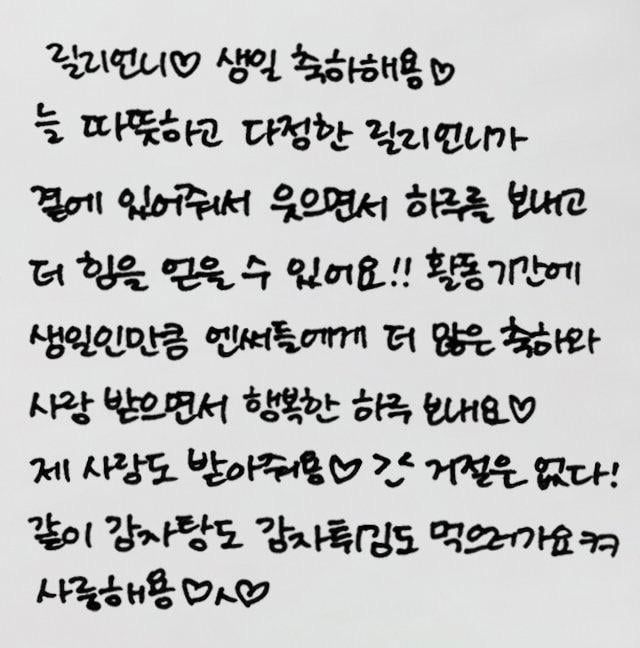 릴리언니♡ 생일 축하해용♡
늘 따뜻하고 다정한 릴리언니가
곁에 있어줘서 웃으면서 하루를 보내고
더 힘을 얻을 수 있어요!! 활동기간에
생일인만큼 엔써들에게 더 많은 축하와
사랑 받으면서 행복한 하루 보내요♡
제 사랑도 받아줘용♡ 거절은 없다!
같이 감자탕도 감자튀김도 먹으러가요ㅋㅋ
사룽해용♡ㅅ♡